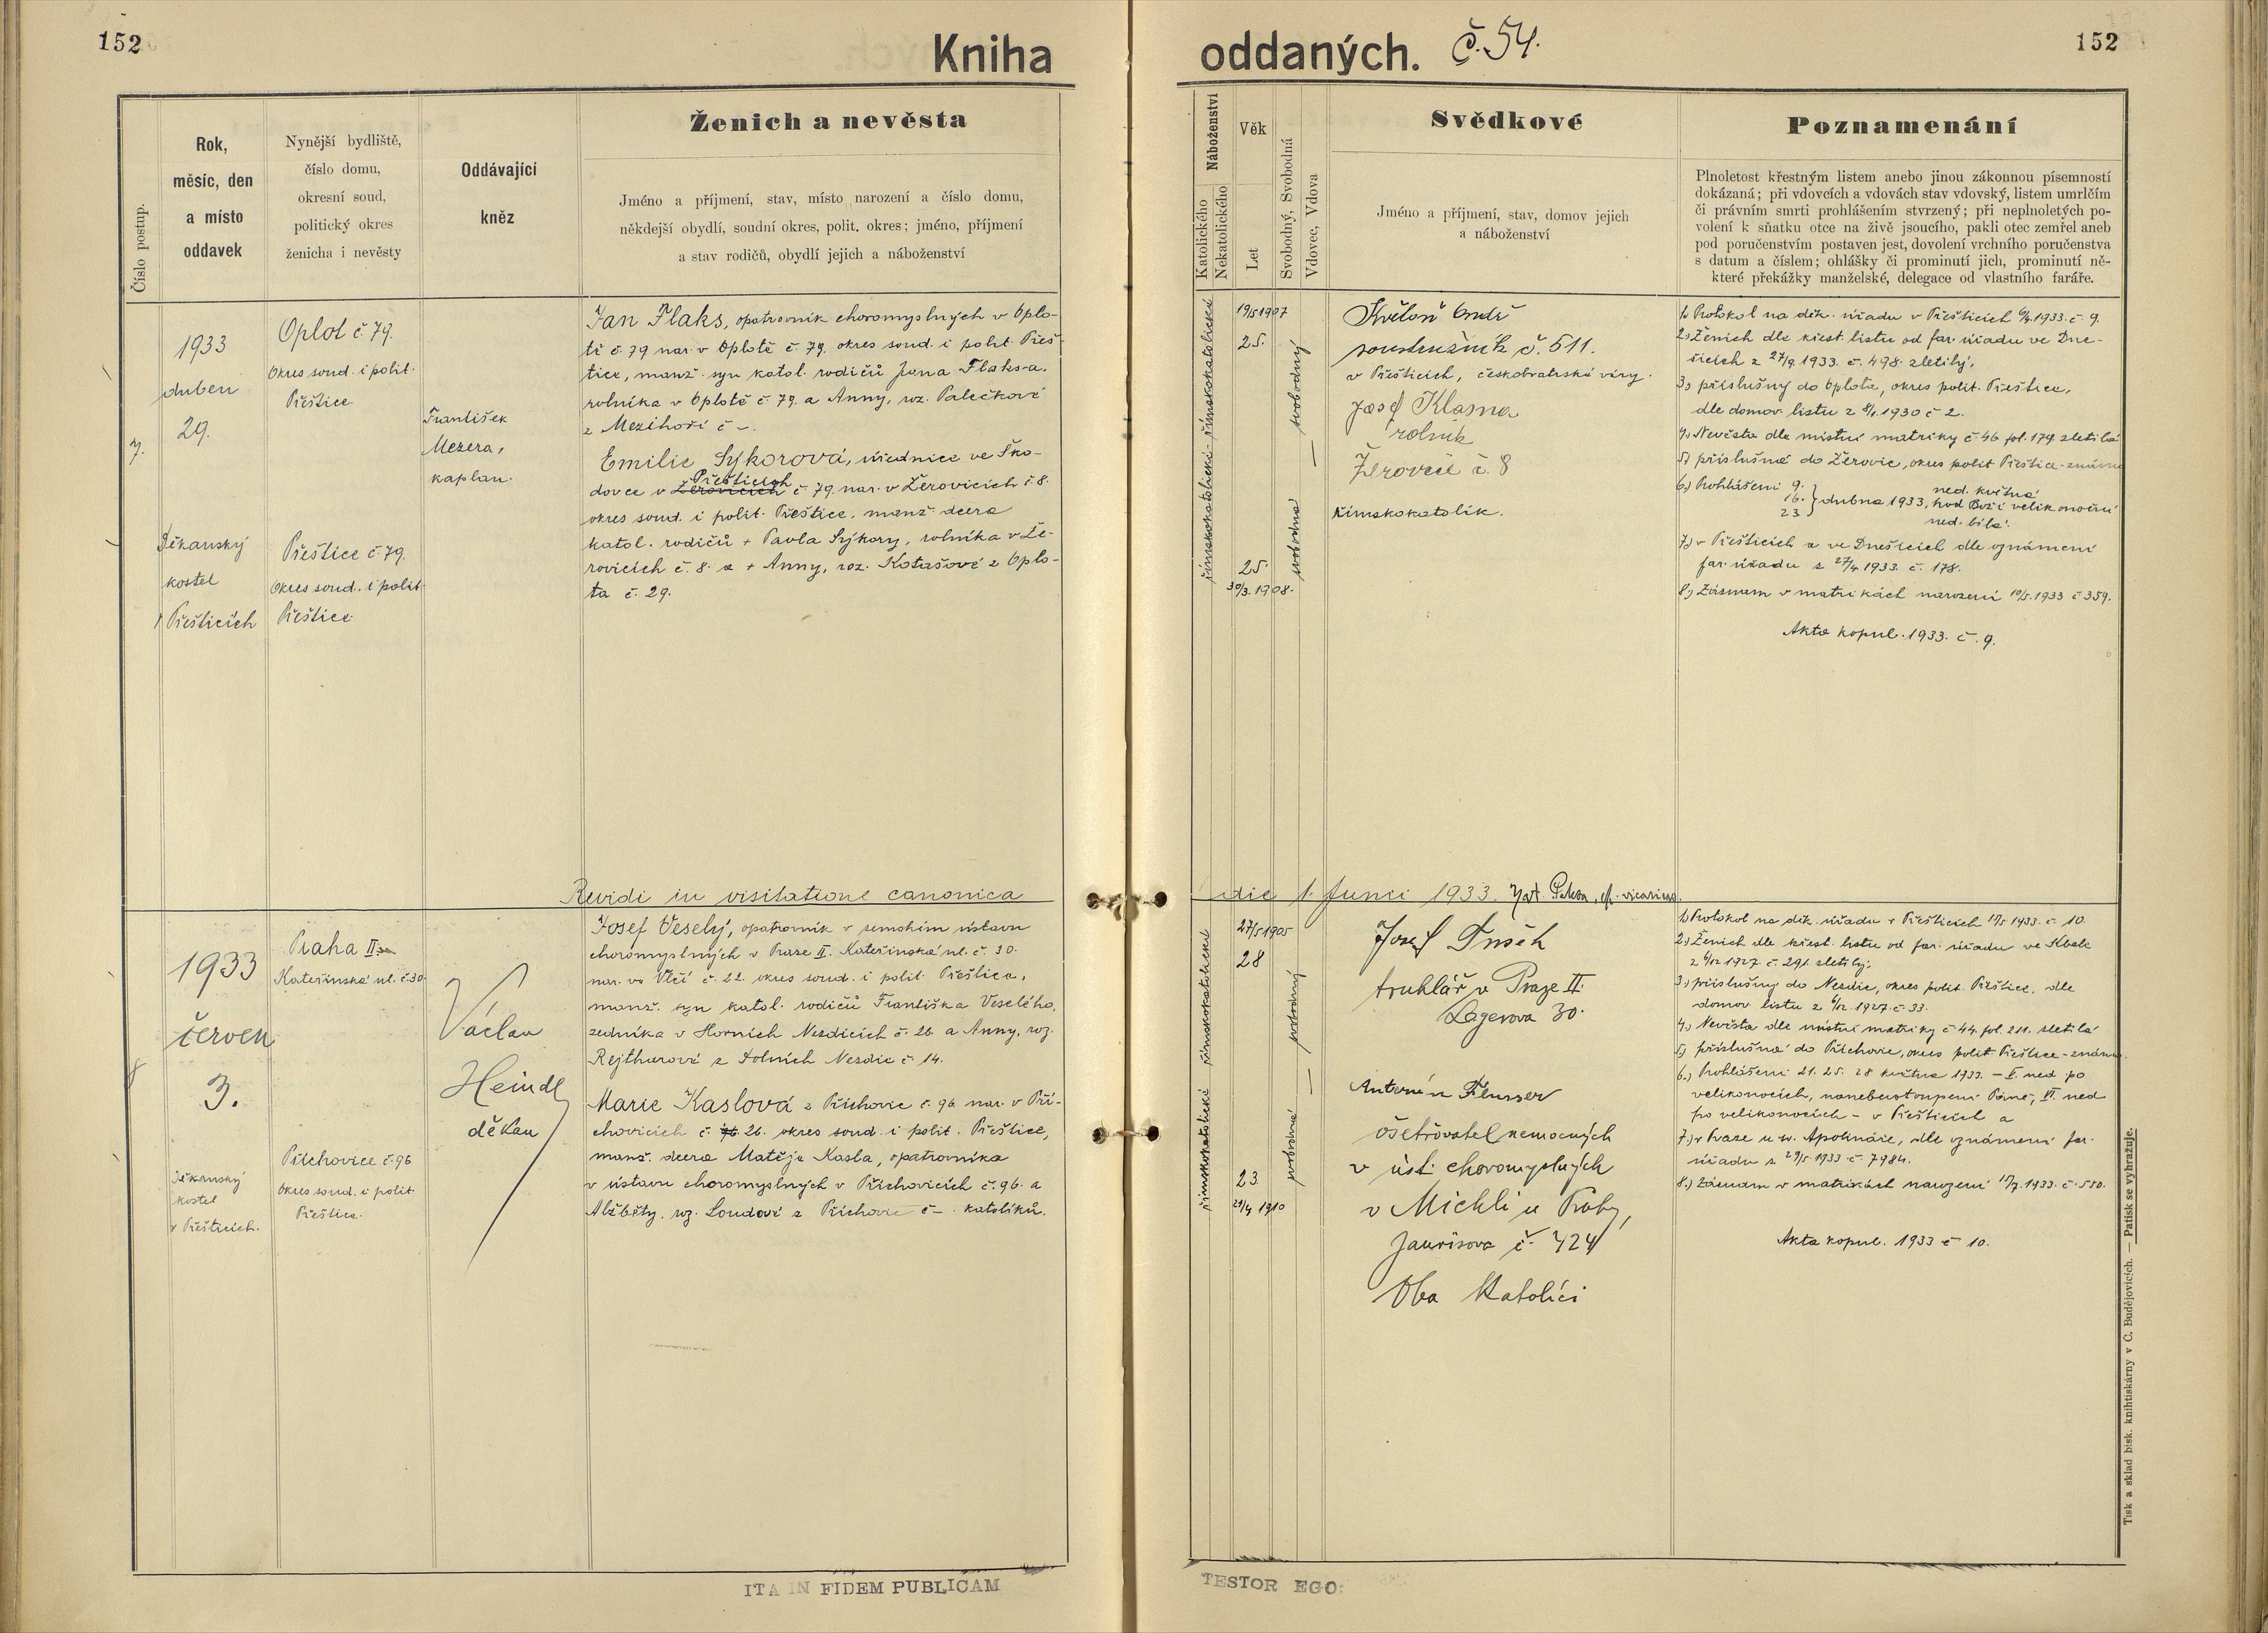 152
Kniha
oddaných. č. 54.
152
Číslo postup.
Rok,
měsíc, den
a místo
oddavek
Nynější bydliště,
číslo domu,
okresní soud,
politický okres
ženicha i nevěsty
Oddávající
kněz
Ženich a nevěsta
Jméno a příjmení, stav, místo narození a číslo domu,
někdejší obydlí, soudní okres, polit. okres; jméno, příjmení
a stav rodičů, obydlí jejich a náboženství
Náboženství
Katolického
Nekatolického
Věk
Let
Svobodný, Svobodná
Vdovec, Vdova
Svědkové
Jméno a příjmení, stav, domov jejich
a náboženství
Poznamenání
Plnoletost křestným listem anebo jinou zákonnou písemností
dokázaná; při vdovcích a vdovách stav vdovský, listem umrlčím
či právním smrti prohlášením stvrzený; při neplnoletých po-
volení k sňatku otce na živě jsoucího, pakli otec zemřel aneb
pod poručenstvím postaven jest, dovolení vrchního poručenstva
s datum a číslem; ohlášky či prominutí jich, prominutí ně-
které překážky manželské, delegace od vlastního faráře.
7.
1933
duben
29.
Děkanský
kostel
v Přešticích
Oplot č 79.
Okres soud. i polit.
Přeštice.
Přeštice č 79.
Okres soud. i polit.
Přeštice
František
Mezera,
kaplan.
Jan Flaks, opatrovník choromyslných v Oplo-
tě č. 79 nar. v Oplotě č. 79. okres soud. i polit. Přeš-
tice, manž. syn katol. rodičů Jana Flaks-a.
rolníka v Oplotě č 79. a Anny, roz. Palečkové
z Mezihoří č –.
Emilie Sýkorová, úřednice ve Ško-
Přešticích
dovce v Žerovicích č. 79. nar. v Žerovicích č 8.
okres soud. i polit. Přeštice, manž. dcera
katol. rodičů + Pavla Sýkory, rolníka v Že-
rovicích č. 8. a + Anny, roz. Kotašové z Oplo-
ta č. 29.
římskokatolické
římskokatolické
19/5 1907
25.
25.
30/3. 1908.
svobodný
–
svobodná
Květoň
soustružník č. 511.
v Přešticích, českobratrské víry.
Josef Klasna
rolník
Žerovice č. 8
římskokatolík.
1) Protokol na děk. úřadu v Přešticích 6/4. 1933. č. 9.
2.) Ženich dle křest. listu od far. úřadu ve Dne-
šicích z 27/9 1933. č. 498. zletilý,
3.) příslušný do Oplota, okres polit. Přeštice,
dle domov. listu z 8/1. 1930 č 2.
4.) Nevěsta dle místní matriky č. 46 fol. 179. zletilá
5.) příslušná do Žerovic, okres polit Přeštice - známa
6.) Prohlášeni 9. 16. 23 } dubna 1933, ned. květná, hod Boží velikonoční, ned. bílá.
7.) v Přešticích a ve Dnešicích dle oznámení
far. úřadu z 27/4 1933. č. 178.
8.) Záznam v matrikách narození 10/5. 1933 č 359.
Akta kopul. 1933. č. 9.
Revidi in visitatione canonica
die 1. Junii 1933.
8
1933
červen
3.
Děkanský
kostel
v Přešticích.
Praha II
Kateřinská ul. č. 30.
Příchovice č. 96
Okres soud. i polit
Přeštice.
Václav
Heindl
děkan
Josef Veselý, opatrovník v zemském ústavu
choromyslných v Praze II. Kateřinská ul. č. 30.
nar. ve Vlčí č. 22. okres soud. i polit. Přeštice,
manž. syn katol. rodičů Františka Veselého,
zedníka v Horních Nezdicích č. 26 a Anny, roz.
Rejtharové z Dolních Nezdic č 14.
Marie Kaslová z Příchovic č. 96 nar. v Pří-
chovicích č. 26. okres soud. i polit. Přeštice,
manž. dcera Matěje Kasla, opatrovníka
v ústavu choromyslných v Příchovicích č. 96. a
Alžběty, roz. Loudové z Příchovic č –. katolíků.
římskokatolické
římskokatolické
27/5 1905
28
23
29/4 1910
svobodný
–
svobodná
Josef Tušek
truhlář v Praze II.
30.
Antonín Flusser
ošetřovatel nemocných
v úst: choromyslných
v Michli u Prahy,
Jaurisova č. 424
Oba katolíci
1) Protokol na děk. úřadu v Přešticích 17/5 1933. č. 10.
2.) Ženich dle křest. listu od far. úřadu ve Kbele
z 6/12 1927. č. 291. zletilý;
3.) příslušný do Nezdic, okres polit. Přeštice, dle
domov. listu z 6/12. 1927. č. 33.
4.) Nevěsta dle místní matriky č 44. fol. 211. zletilá
5.) příslušná do Příchovic, okres polit. Přeštice - známa.
6.) Prohlášeni 21. 25. 28 května 1933. – V. ned po
velikonocích, nanebevstoupení Páně, VI. ned
po velikonocích – v Přešticích a
7.) v Praze u sv. Apolináře, dle oznámení far.
úřadu z 29/5 1933 č. 7984.
8.) Záznam v matrikách narození 17/7. 1933. č. 550.
Akta kopul. 1933 č 10.
ITA IN FIDEM PUBLICAM
TESTOR EGO:
Tisk a sklad bisk. knihtiskárny v Č. Budějovicích. — Patisk se vyhražuje.